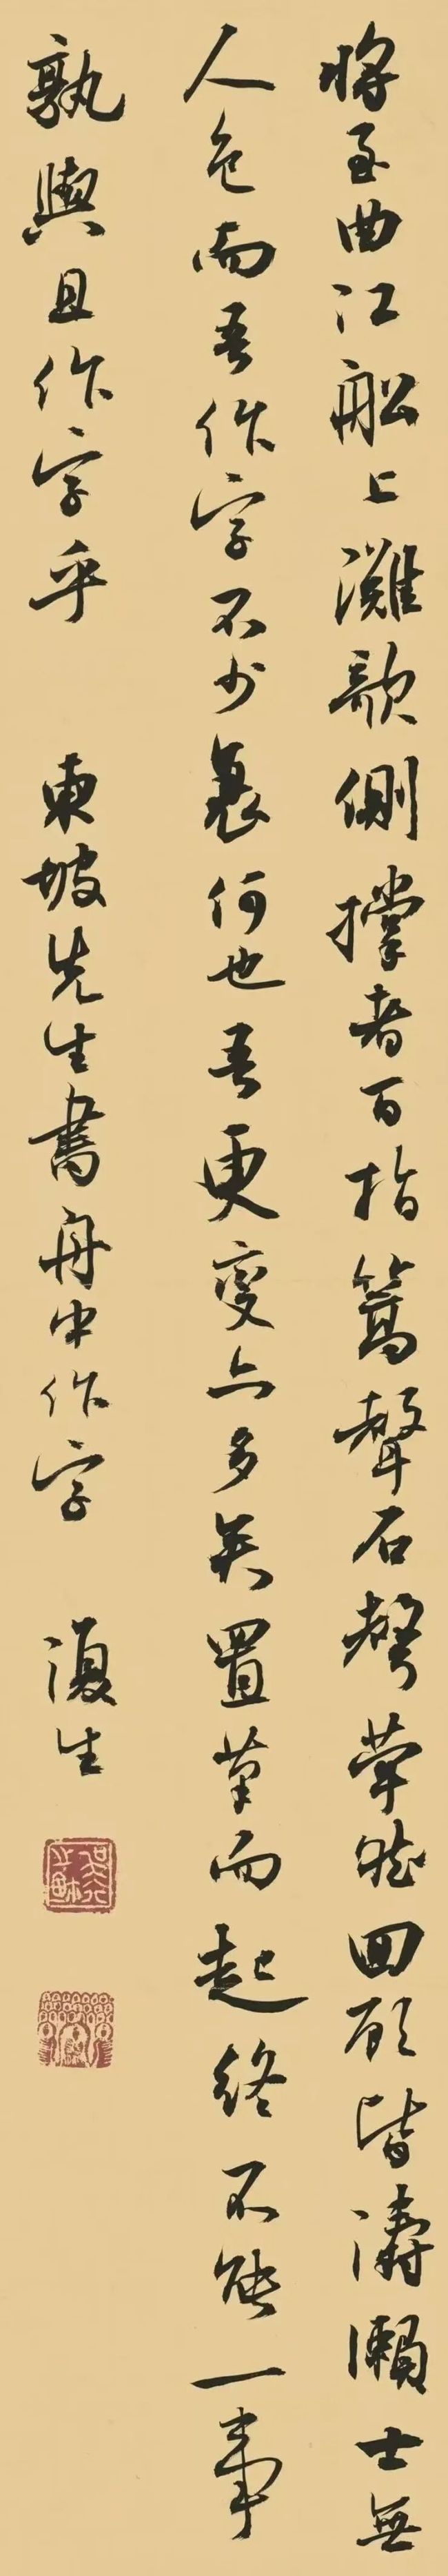 將至曲江舩上灘欹側撑者百指篙聲石聲犖然四顧皆濤瀨士無
人色而吾作字不少衰何也吾更變亦多矣置筆而起終不能一事
孰與且作字乎 東坡先生書舟中作字 復生